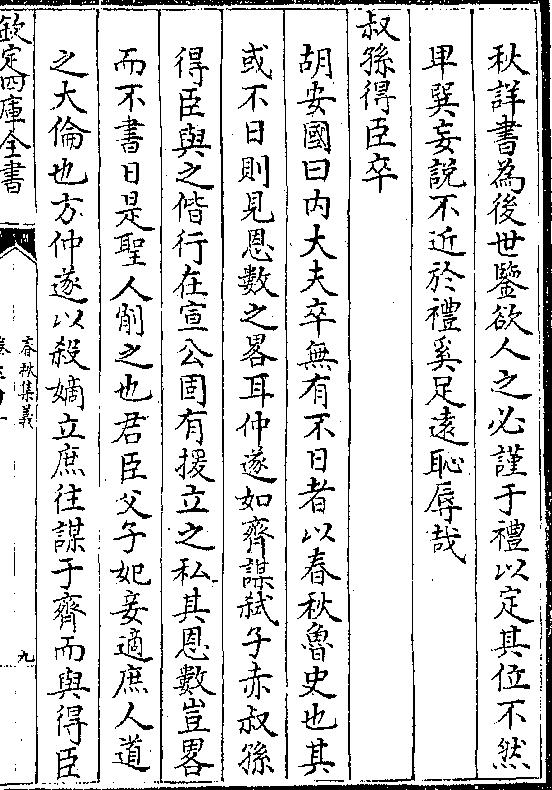 秋詳書為後世鑒欲人之必謹于禮以定其位不然
卑巽妄說不近於禮奚足遠恥辱哉
叔孫得臣卒
胡安國曰內大夫卒無有不日者以春秋魯史也其
或不日則見恩數之畧耳仲遂如齊謀弒子赤叔孫
得臣與之偕行在宣公固有援立之私其恩數豈畧
而不書日是聖人削之也君臣父子妃妾適庶人道
之大倫也方仲遂以殺嫡立庶往謀于齊而與得臣
欽定四庫全書
春秋集義
九